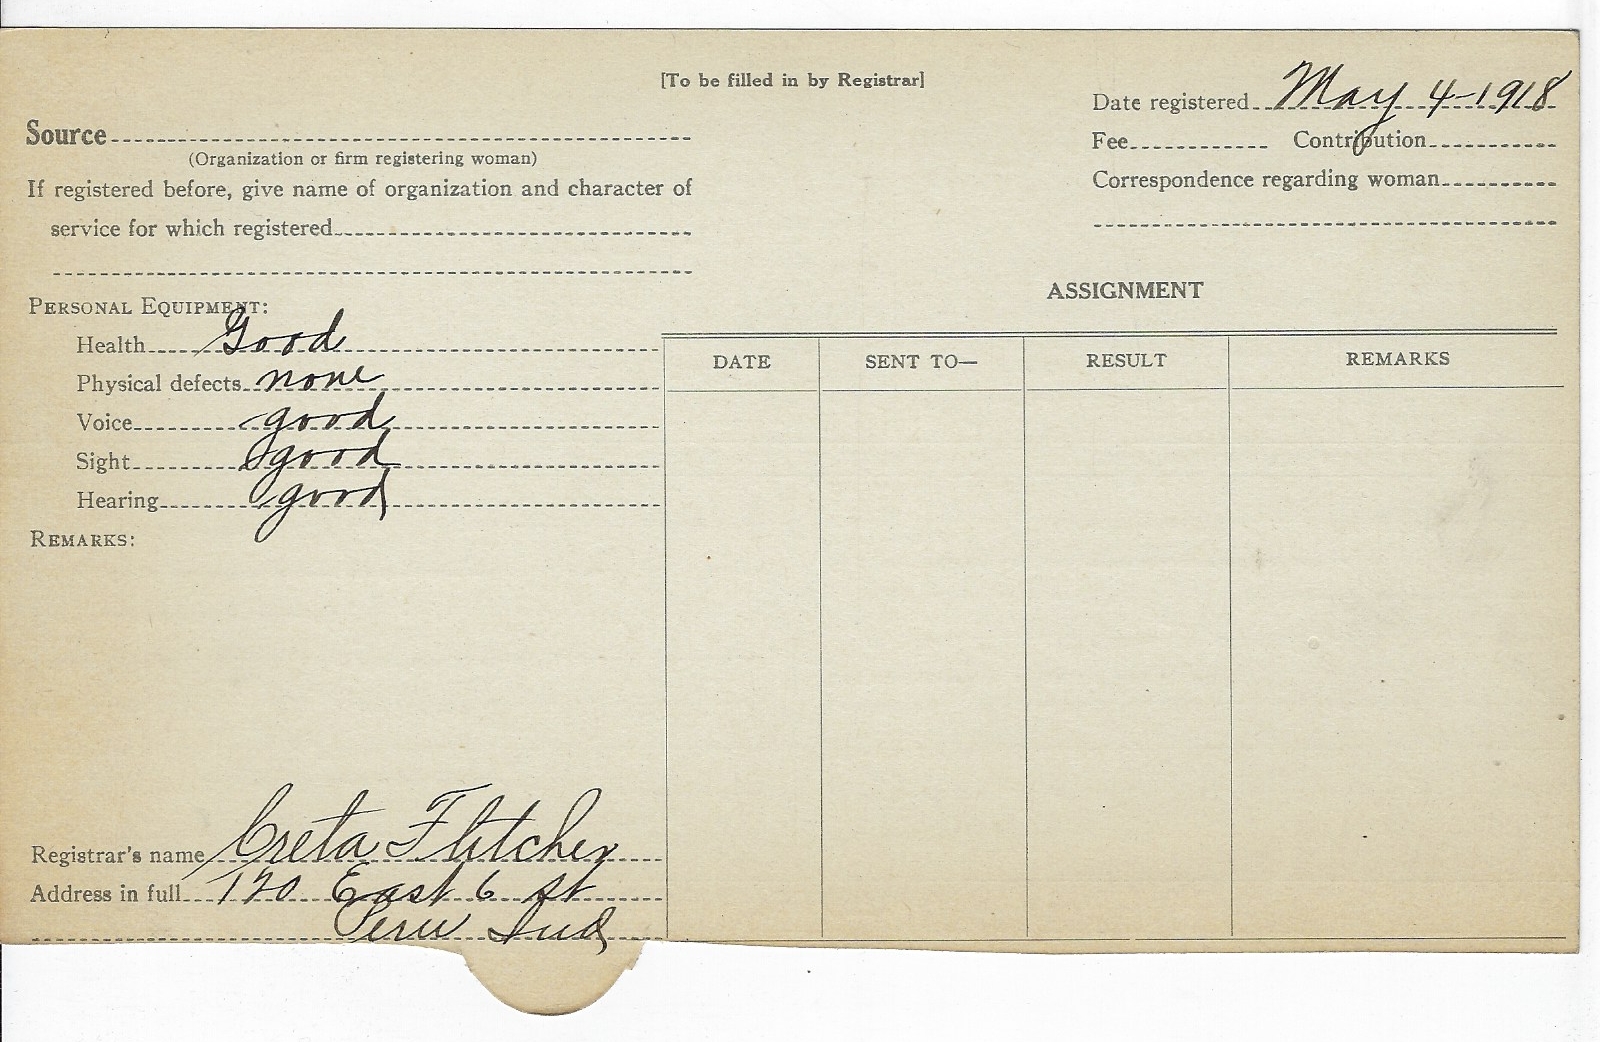 [To be filled in by Registrar]
Date registered May 4-1918
Source
Fee Contribution
(Organization or firm registering woman)
Correspondence regarding woman
If registered before, give name of organization and character of
service for which registered
PERSONAL EQUIPMENT:
Health Good
Physical defects none
Voice good
Sight good
Hearing good
REMARKS:
ASSIGNMENT
DATE SENT TO— RESULT REMARKS
Registrar's name Creta Flitcher
Address in full 120 East 6 st
Peru Ind